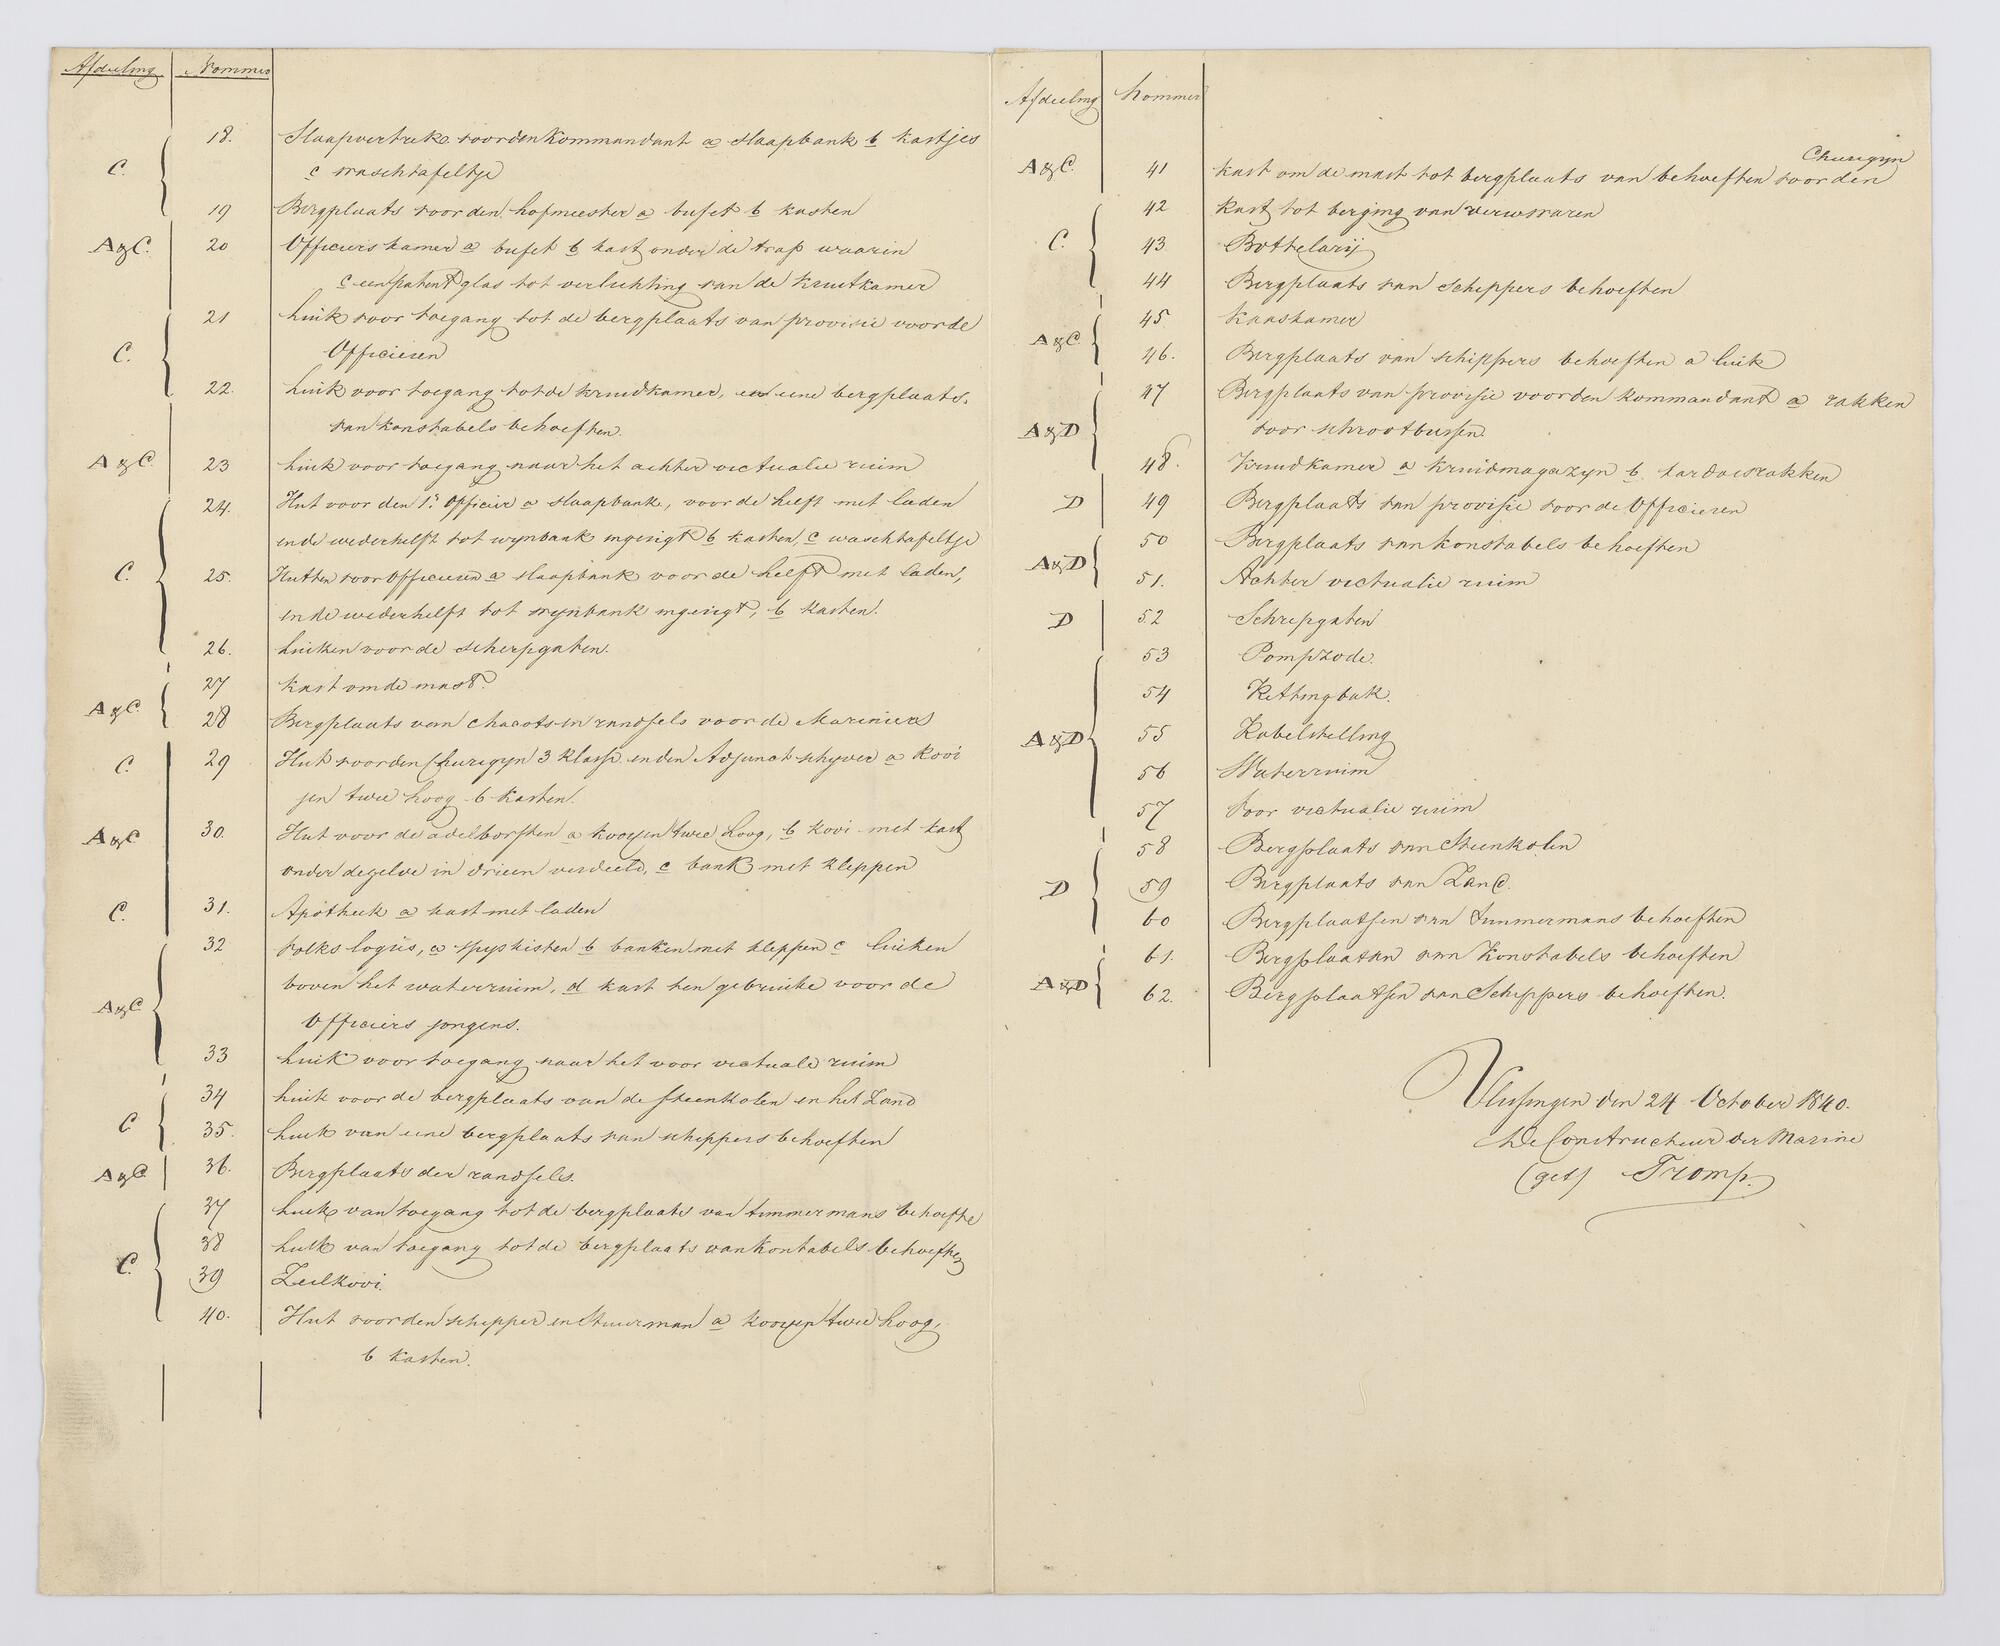 Afdeeling Nommer
18. Slaapvertrek voor den Kommandant a slaapbank b kastjes
C. c waschtafeltje
19 Bergplaats voor den hofmeester a bufet b kasten
A&C. 20 Officiers kamer a bufet b kast onder de trap waarin
c een patent glas tot verlichting van de kruitkamer
21 luik voor toegang tot de bergplaats van provisie voor de
C. Officieren
22. luik voor toegang tot de kruidkamer, en eene bergplaats
van konstabels behoeften.
A&C 23 luik voor toegang naar het achter victualie ruim
24. Hut voor den 1e. Officier a slaapbank, voor de helft met laden
en de wederhelft tot wynbank ingerigt b kasten, c waschtafeltje
C. 25. Hutten voor Officieren a slaapbank voor de helft met laden,
en de wederhelft tot wynbank ingerigt, b kasten.
26. luiken voor de scherpgaten.
27 kast om de mast.
A&C 28 Bergplaats van chacots en randsels voor de Mariniers
C. 29 Hut voor den Chururgyn 3 klasse en den Adjunct schyver a kooi
jen twee hoog b kasten.
A&C 30. Hut voor de adelborsten a kooijen twee hoog, b kooi met kast
onder dezelve in drieen verdeeld, c bank met kleppen
C. 31. Apotheek a kast met laden
32 volks logijs, a spyskisten b banken met kleppen c luiken
boven het waterruim, d kast ten gebruike voor de
A&C Officiers jongens.
33 luik voor toegang naar het voor victuale ruim
34 luik voor de bergplaats van de steenkolen en het Zand
C 35. luik van eene bergplaats van schippers behoeften
A&C 36. Bergplaats der randsels.
37 luik van toegang tot de bergplaats van timmermans behoefte
38 luik van toegang tot de bergplaats van kontabels behoeften
C. 39 Zeilkooi.
40. Hut voor den schipper en Stuurman a kooijen twee hoog,
b kasten.
Afdeeling Nommer
Chururgyn
A&C. 41 kast om de mast tot bergplaats van behoeften voor den
42 kast tot berging van verwwaren
C. 43 Bottelarij
44 Bergplaats van schippers behoeften
45 kaaskamer
A&C. 46. Bergplaats van schippers behoeften a luik
47 Bergplaats van provisie voor den kommandant a rakken
A&D voor schrootbussen.
48. Kruidkamer a kruidmagazyn b. kardoesrakken
D 49 Bergplaats van provisie voor de Officieren
50 Bergplaats van konstabels behoeften
A&D 51. Achter victualie ruim
D 52 Scherpgaten
53 Pompzode.
54 Kettingbak.
A&D 55 Kabelstelling
56 Waterruim
57 voor victualie ruim
58 Bergplaats van Steenkolen
D 59 Bergplaats van Zand.
60 Bergplaatsen van timmermans behoeften
61. Bergplaatsen van Konstabels behoeften
A&D 62. Bergplaatsen van Schippers behoeften.
Vlissingen den 24 October 1840.
De Constructeur der Marine
(get) Tromp.